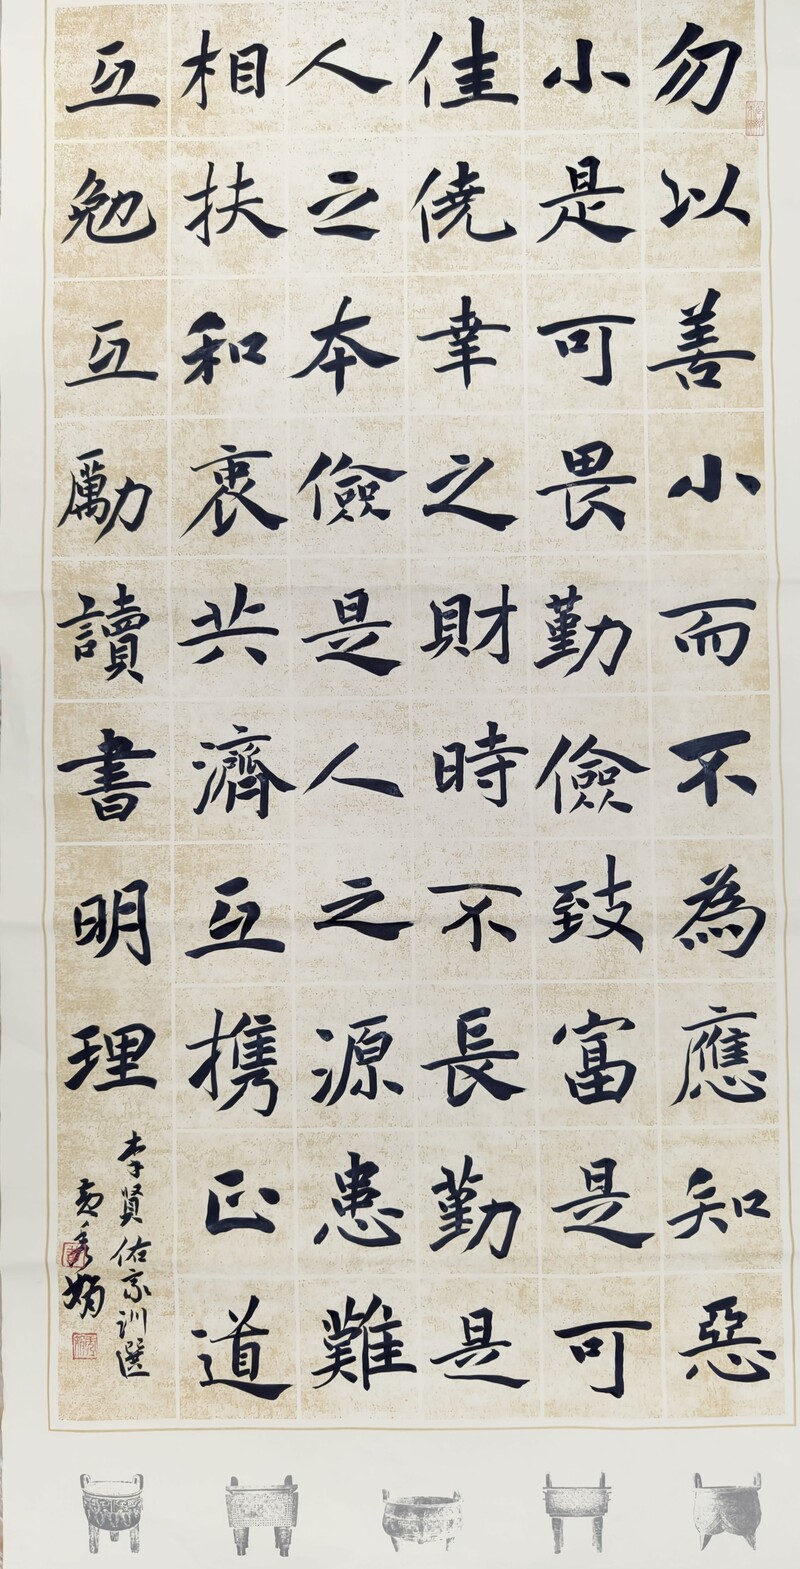 勿以善小而不為應知惡
小是可畏勤儉致富是可
佳僥幸之財時不長勤是
人之本儉是人之源患難
相扶和衷共濟互攜正道
互勉互勵讀書明理
李賢佑家訓選
黄秀娟